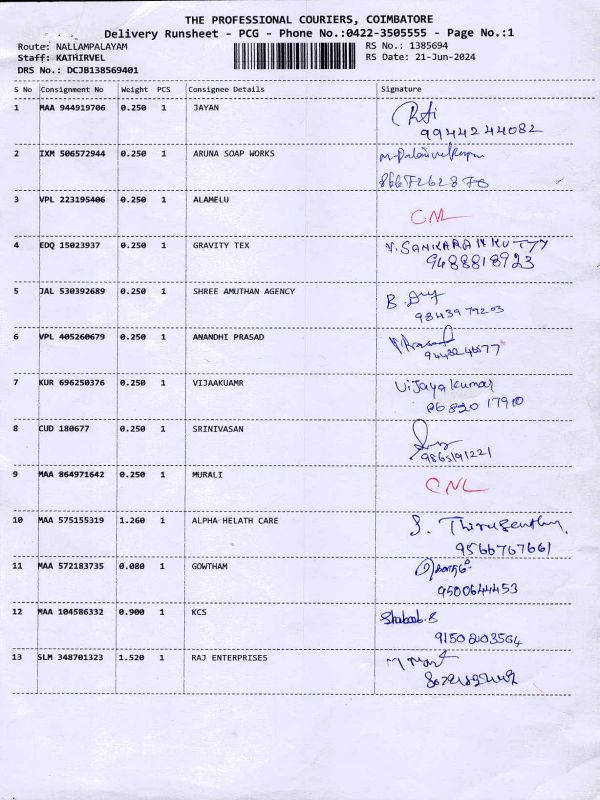 THE PROFESSIONAL COURIERS, COIMBATORE
Delivery Runsheet - PCG - Phone No.:0422-3505555 - Page No.:1
Route: NALLAMPALAYAM RS No.: 1385694
Staff: KATHIRVEL RS Date: 21-Jun-2024
DRS No.: DCJB138569401
S No Consignment No Weight PCS Consignee Details Signature
1 MAA 944919706 0.250 1 JAYAN
9944244082
2 IXM 506572944 0.250 1 ARUNA SOAP WORKS
8667262870
3 VPL 223195406 0.250 1 ALAMELU
CNL
4 EDQ 15023937 0.250 1 GRAVITY TEX V. SANKARAN KUTTY
9488818923
5 JAL 530392689 0.250 1 SHREE AMUTHAN AGENCY
9843979203
6 VPL 405260679 0.250 1 ANANDHI PRASAD
7 KUR 696250376 0.250 1 VIJAAKUAMR Vijayakumar
86820 17910
8 CUD 180677 0.250 1 SRINIVASAN
9865191221
9 MAA 864971642 0.250 1 MURALI CNL
10 MAA 575155319 1.260 1 ALPHA HELATH CARE
9566767661
11 MAA 572183735 0.080 1 GOWTHAM
9500644453
12 MAA 104586332 0.900 1 KCS
9150203564
13 SLM 348701323 1.520 1 RAJ ENTERPRISES